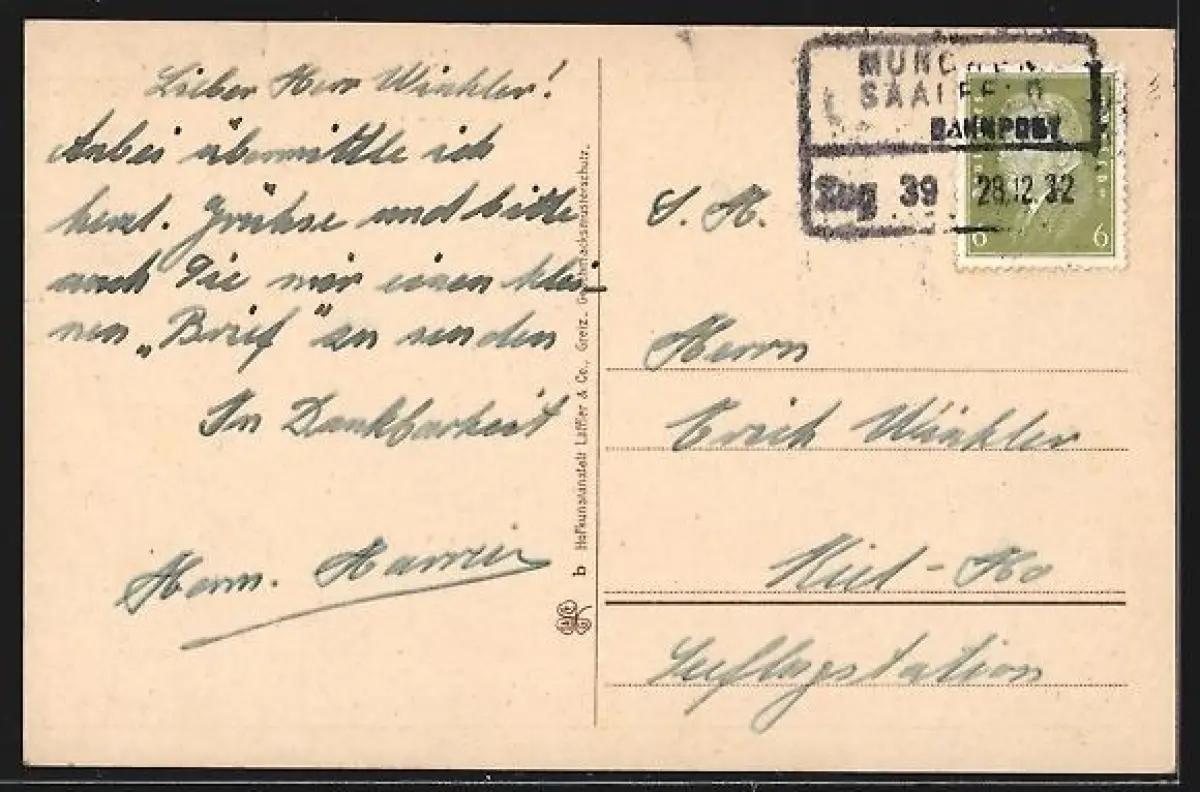 Lieber Herr Winkler!
Anbei übermittle ich
herzl. Grühse und bitte
auch Sie mir einen klei-
nen „Brief“ zu senden
In Dankbarkeit
Herm.
b Hofkunstanstalt Löffler & Co., Greiz. Geschmacksmusterschutz.
MÜNCHEN
SAALFELD
BAHNPOST
Zug 39 28.12.32
6 6
S. H.
Herrn
Erich Winkler
Kiel - Ho